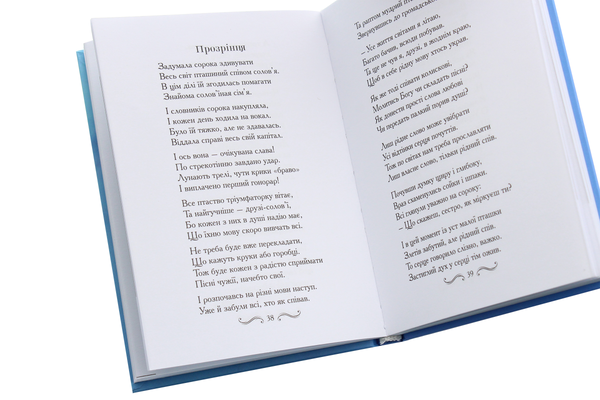 Прозрінця
Задумала сорока здивувати
Весь світ пташиний співом солов'я.
В цім ділі їй згодилась помагати
Знайома солов'їная сім'я.
І словників сорока накупляла,
І кожен день ходила на вокал.
Було їй тяжко, але не здавалась.
Віддала справі весь свій капітал.
І ось вона — очікувана слава!
По стрекотінню завдано удар.
Лунають трелі, чути крики «браво»
І виплачено перший гонорар!
Все птаство тріумфаторку вітає,
Та найгучніше — друзі-солов'ї,
Бо кожен з них в душі надію має,
Що їхню мову скоро вивчать всі.
Не треба буде вже перекладати,
Що кажуть круки або горобці.
Тож буде кожен з радістю сприймати
Пісні чужії, начебто свої.
І розпочавсь на різні мови наступ.
Уже й забули всі, хто як співав.
38
Та раптом мудрий
Звернувшись до громадсько
– Усе життя світами я літаю,
Багато бачив, всюди побував.
Та ще не чув я, друзі, в жоднім краю,
Щоб в себе рідну мову хтось украв.
Як же тоді співати колискові,
Молитись Богу чи складать пісні?
Як донести прості слова любові
Чи передать палкий порив душі?
Лиш рідне слово може увібрати
Усі відтінки серця почуттів.
Тож по світах нам треба прославляти
Лиш власне слово, тільки рідний спів.
Почувши думку щиру і глибоку,
Враз схаменулись сойки і шпаки.
Всі глянули уважно на сороку:
– Що скажеш, сестро, як міркуєш ти?
І в цей момент із уст малої пташки
Злетів забутий, але рідний спів.
То серце говорило слізно, важко.
Застиглий дух у серці тім ожив.
39